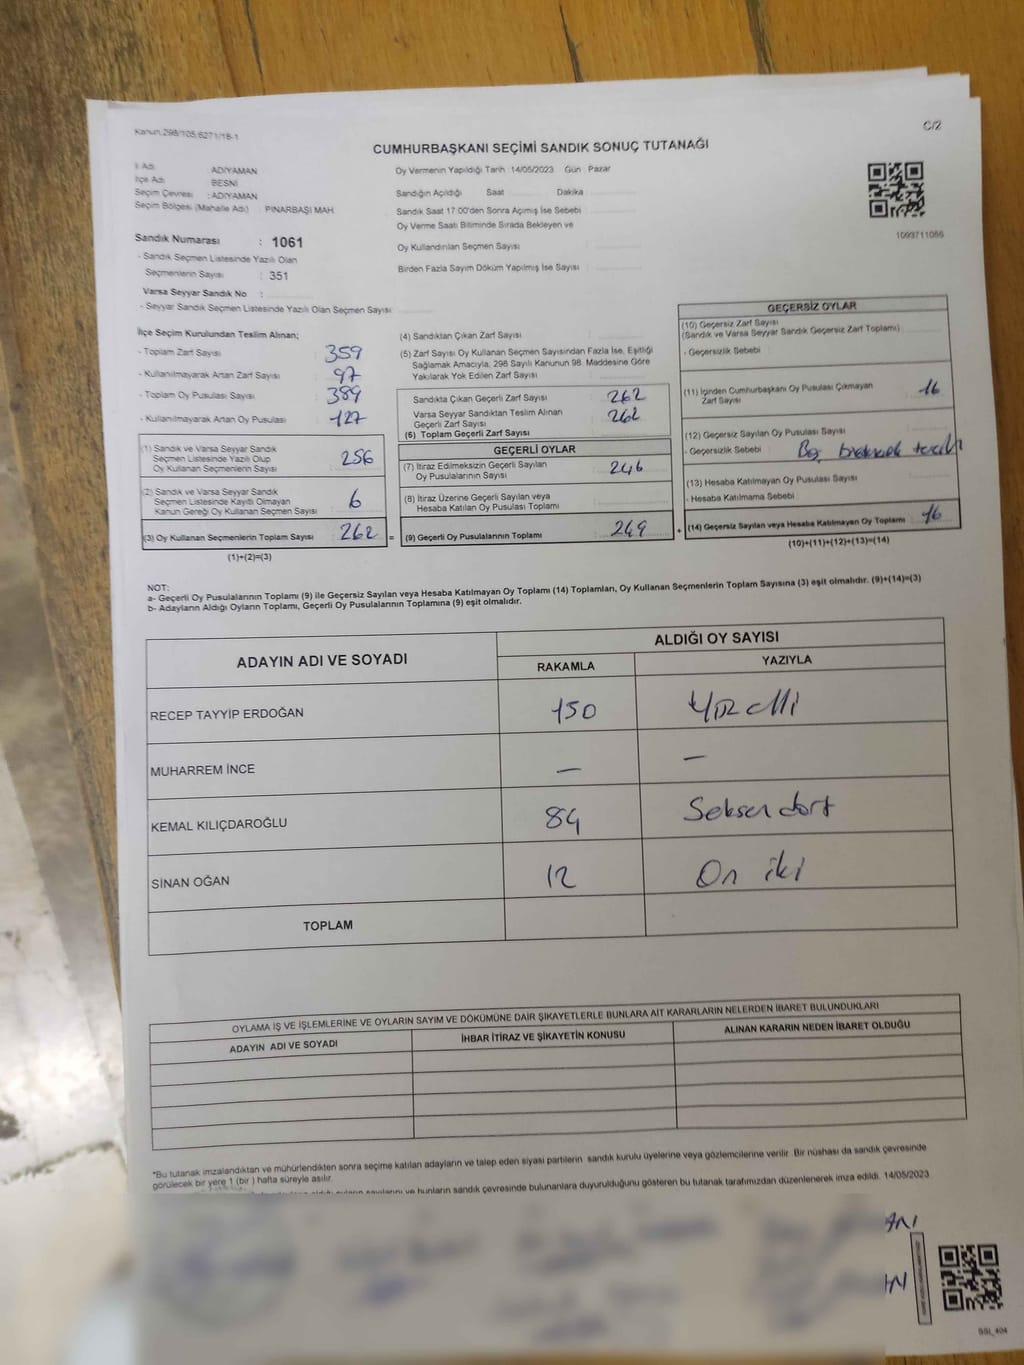 Kanun.298/105,6271/18-1
C/2
CUMHURBAŞKANI SEÇİMİ SANDIK SONUÇ TUTANAĞI
İl Adı : ADIYAMAN
İlçe Adı : BESNİ
Seçim Çevresi : ADIYAMAN
Seçim Bölgesi (Mahalle Adı) : PINARBAŞI MAH.
Sandık Numarası : 1061
- Sandık Seçmen Listesinde Yazılı Olan
Seçmenlerin Sayısı : 351
Varsa Seyyar Sandık No :
- Seyyar Sandık Seçmen Listesinde Yazılı Olan Seçmen Sayısı :
Oy Vermenin Yapıldığı Tarih : 14/05/2023 Gün : Pazar
Sandığın Açıldığı Saat Dakika
Sandık Saat 17:00'den Sonra Açmış İse Sebebi
Oy Verme Saati Bitiminde Sırada Bekleyen ve
Oy Kullandırılan Seçmen Sayısı :
Birden Fazla Sayım Döküm Yapılmış İse Sayısı :
1093711066
İlçe Seçim Kurulundan Teslim Alınan;
- Toplam Zarf Sayısı : 359
- Kullanılmayarak Artan Zarf Sayısı : 97
- Toplam Oy Pusulası Sayısı : 389
- Kullanılmayarak Artan Oy Pusulası : 127
(1) Sandık ve Varsa Seyyar Sandık
Seçmen Listesinde Yazılı Olup
Oy Kullanan Seçmenlerin Sayısı : 256
(2) Sandık ve Varsa Seyyar Sandık
Seçmen Listesinde Kayıtlı Olmayan
Kanun Gereği Oy Kullanan Seçmen Sayısı : 6
(3) Oy Kullanan Seçmenlerin Toplam Sayısı : 262
(1)+(2)=(3)
(4) Sandıktan Çıkan Zarf Sayısı :
(5) Zarf Sayısı Oy Kullanan Seçmen Sayısından Fazla İse, Eşitliği
Sağlamak Amacıyla, 298 Sayılı Kanunun 98. Maddesine Göre
Yakılarak Yok Edilen Zarf Sayısı :
Sandıkta Çıkan Geçerli Zarf Sayısı : 262
Varsa Seyyar Sandıktan Teslim Alınan
Geçerli Zarf Sayısı : 262
(6) Toplam Geçerli Zarf Sayısı
GEÇERLİ OYLAR
(7) İtiraz Edilmeksizin Geçerli Sayılan
Oy Pusulalarının Sayısı : 246
(8) İtiraz Üzerine Geçerli Sayılan veya
Hesaba Katılan Oy Pusulası Toplamı :
= (9) Geçerli Oy Pusulalarının Toplamı : 249 +
GEÇERSİZ OYLAR
(10) Geçersiz Zarf Sayısı
(Sandık ve Varsa Seyyar Sandık Geçersiz Zarf Toplamı) :
- Geçersizlik Sebebi :
(11) İçinden Cumhurbaşkanı Oy Pusulası Çıkmayan
Zarf Sayısı : 16
(12) Geçersiz Sayılan Oy Pusulası Sayısı :
- Geçersizlik Sebebi : Boş
(13) Hesaba Katılmayan Oy Pusulası Sayısı :
- Hesaba Katılmama Sebebi :
(14) Geçersiz Sayılan veya Hesaba Katılmayan Oy Toplamı : 16
(10)+(11)+(12)+(13)=(14)
NOT:
a- Geçerli Oy Pusulalarının Toplamı (9) ile Geçersiz Sayılan veya Hesaba Katılmayan Oy Toplamı (14) Toplamları, Oy Kullanan Seçmenlerin Toplam Sayısına (3) eşit olmalıdır. (9)+(14)=(3)
b- Adayların Aldığı Oyların Toplamı, Geçerli Oy Pusulalarının Toplamına (9) eşit olmalıdır.
ADAYIN ADI VE SOYADI
ALDIĞI OY SAYISI
RAKAMLA YAZIYLA
RECEP TAYYİP ERDOĞAN 150 Yüz elli
MUHARREM İNCE — —
KEMAL KILIÇDAROĞLU 84 Seksen dört
SİNAN OĞAN 12 On iki
TOPLAM
OYLAMA İŞ VE İŞLEMLERİNE VE OYLARIN SAYIM VE DÖKÜMÜNE DAİR ŞİKAYETLERLE BUNLARA AİT KARARLARIN NELERDEN İBARET BULUNDUKLARI
ADAYIN ADI VE SOYADI İHBAR İTİRAZ VE ŞİKAYETİN KONUSU ALINAN KARARIN NEDEN İBARET OLDUĞU
*Bu tutanak imzalandıktan ve mühürlendikten sonra seçime katılan adayların ve talep eden siyasi partilerin sandık kurulu üyelerine veya gözlemcilerine verilir. Bir nüshası da sandık çevresinde
görülecek bir yere 1 (bir) hafta süreyle asılır.
sayılarını ve bunların sandık çevresinde bulunanlara duyurulduğunu gösteren bu tutanak tarafımızdan düzenlenerek imza edildi. 14/05/2023
SSI_404